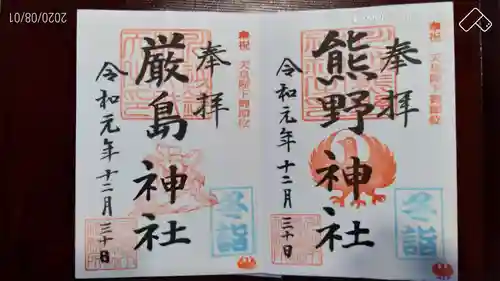 2020/08/01
奉祝 天皇陛下御即位
奉拝
厳島神社
令和元年十二月三十日
冬詣
奉祝 天皇陛下御即位
奉拝
熊野神社
令和元年十二月三十日
冬詣